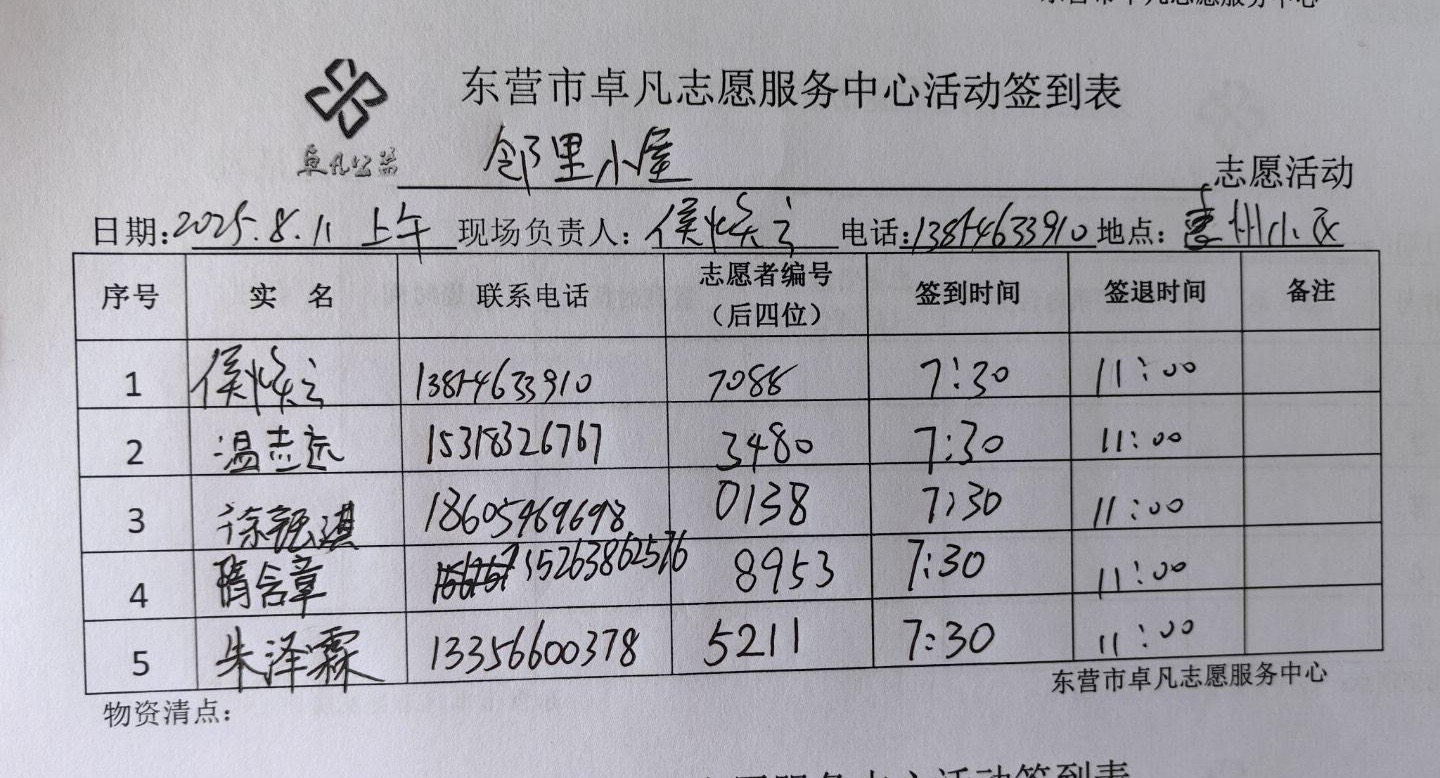 东营市卓凡志愿服务中心
东营市卓凡志愿服务中心活动签到表
卓凡公益
邻里小屋 志愿活动
日期:2025.8.11 上午 现场负责人:侯焕云 电话:13854633910 地点:惠州小区
序号 实 名 联系电话 志愿者编号（后四位） 签到时间 签退时间 备注
1 侯焕云 13854633910 7088 7:30 11:00
2 温志远 15318326767 3480 7:30 11:00
3 徐 淇 18605469698 0138 7:30 11:00
4 隋含章 15263862576 8953 7:30 11:00
5 朱泽霖 13356600378 5211 7:30 11:00
东营市卓凡志愿服务中心
物资清点：
志愿服务中心活动签到表